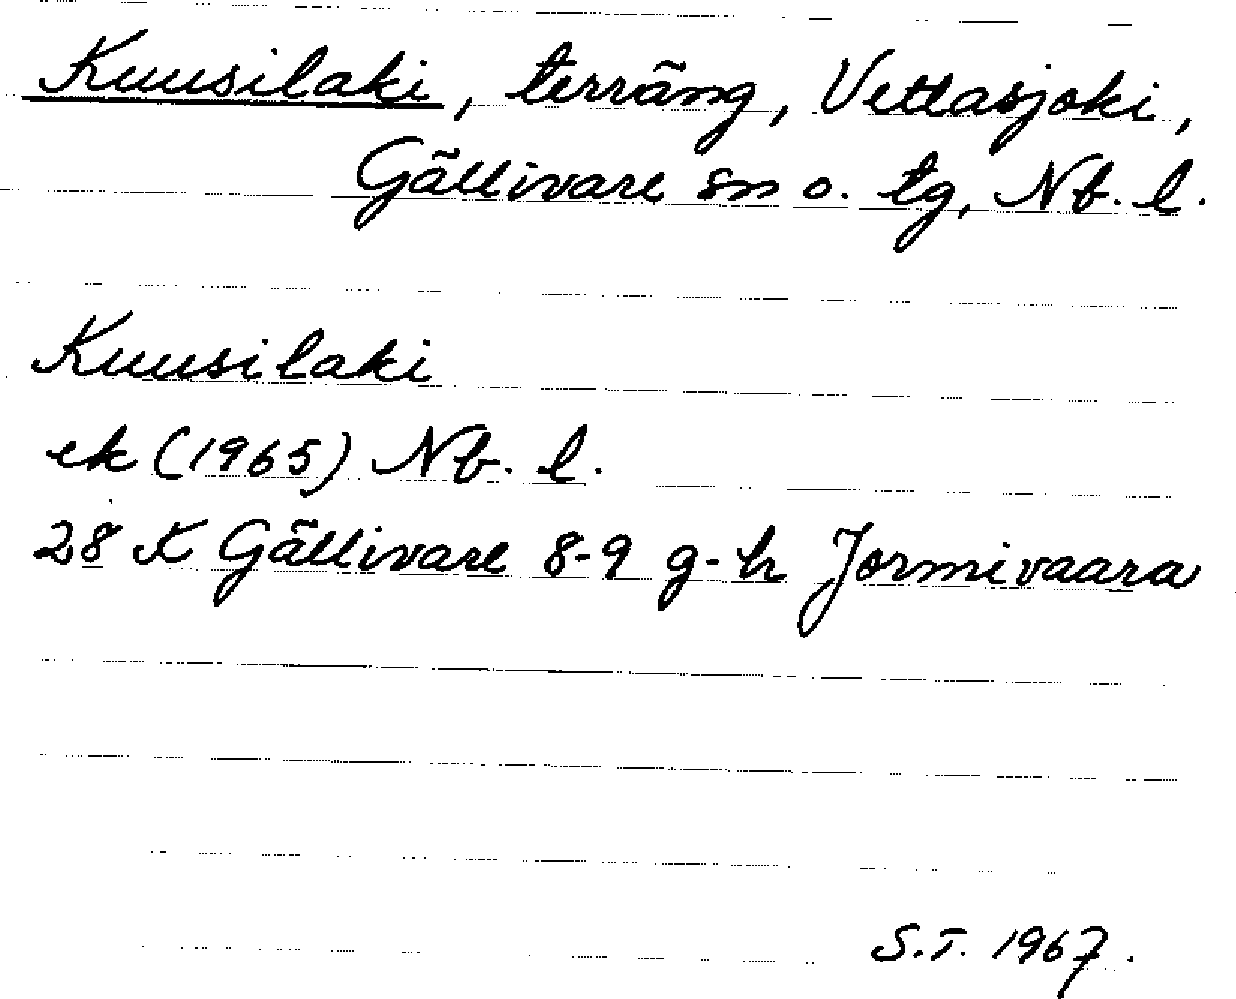 Kuusilaki, terräng, Vettasjoki,
Gällivare sn o. tg, Nb. l.
Kuusilaki
ek (1965) Nb. l.
28 K Gällivare 8-9 g-h Jormivaara
S.T. 1967.